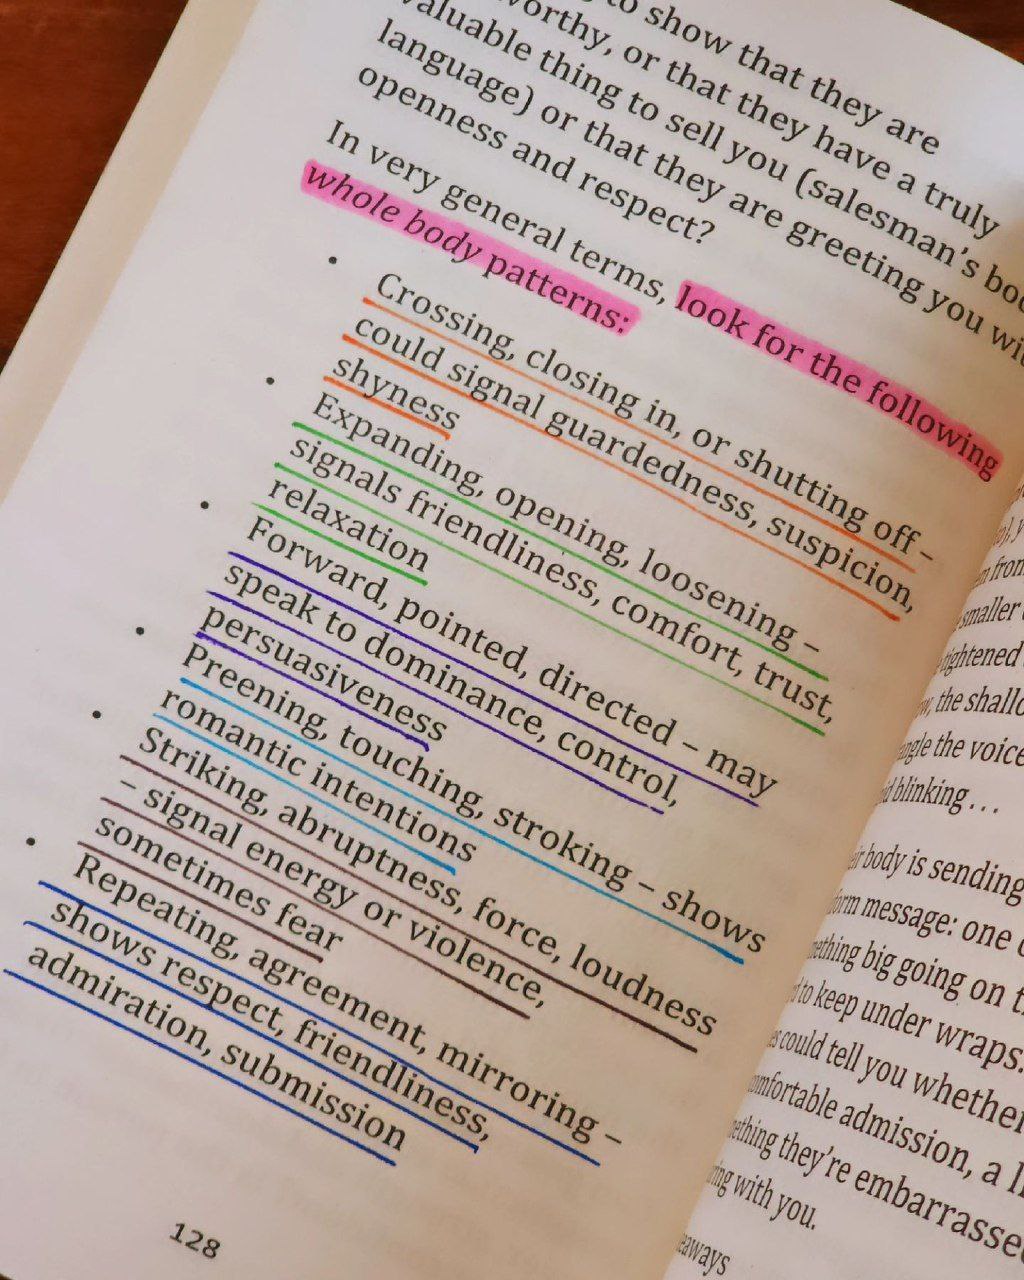 to show that they are
worthy, or that they have a truly
valuable thing to sell you (salesman's
language) or that they are greeting you
openness and respect?
In very general terms, look for the following
whole body patterns:
• Crossing, closing in, or shutting off –
could signal guardedness, suspicion,
shyness
• Expanding, opening, loosening –
signals friendliness, comfort, trust,
relaxation
• Forward, pointed, directed – may
speak to dominance, control,
persuasiveness
• Preening, touching, stroking – shows
romantic intentions
• Striking, abruptness, force, loudness
– signal energy or violence,
sometimes fear
• Repeating, agreement, mirroring –
shows respect, friendliness,
admiration, submission
128
from
smaller
tightened
the shallo
angle the voice
blinking...
body is sending
form message: one
big going on
to keep under wraps.
could tell you whether
admission, a
they're embarrasse
with you.